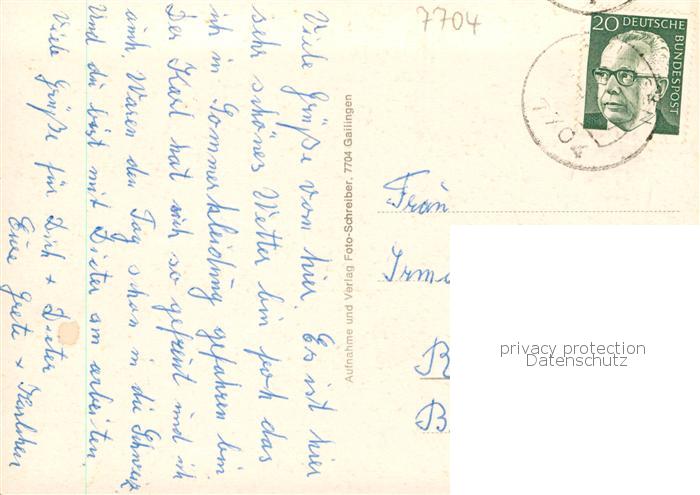 7704
20 DEUTSCHE
BUNDESPOST
7704
Viele Grüße von hier. Es ist hier
sehr schönes Wetter bin froh das
ich in Sommerkleidung gefahren bin
Der Karl hat sich so gefreut und ich
auch. Waren den Tag schon in die Schweiz
Und du bist mit Dieter am arbeiten.
Viele Grüße für Dich + Dieter
Eure Grete + Karlchen
Aufnahme und Verlag Foto-Schreiber, 7704 Gailingen
Frau
Irm
B
privacy protection
Datenschutz